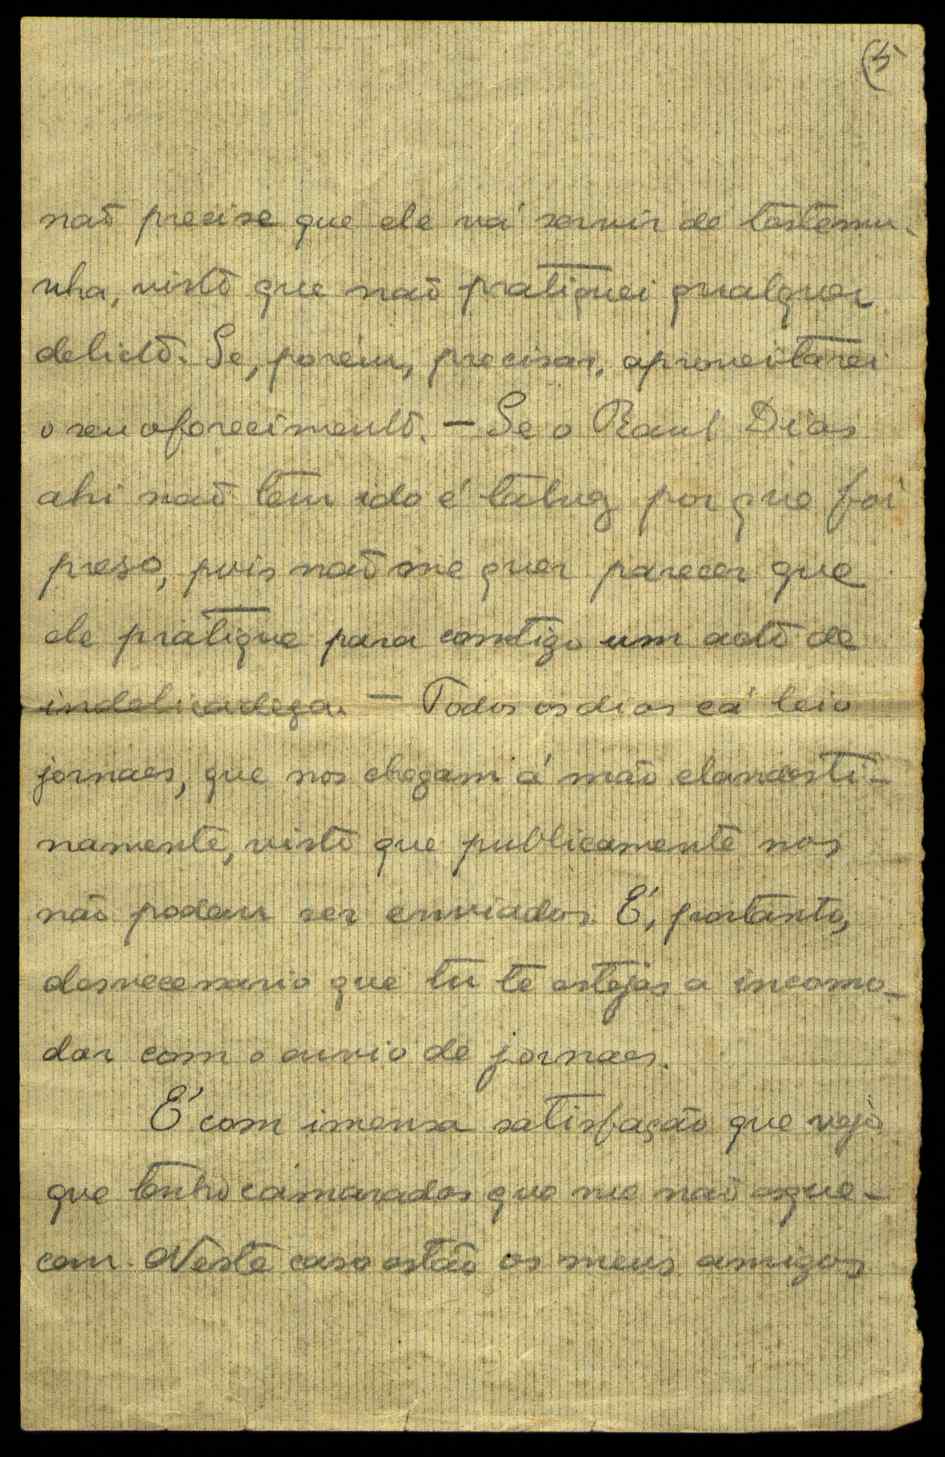 (5
não precise que ele vá servir de testemu-
nha, visto que não pratiquei qualquer
delicto. Se, porém, precisar, aproveitarei
o seu oforecimento. — Se o Raul Dias
ahi não tem ido é talvez porque foi
preso, pois não me quer parecer que
ele pratique para comtigo um acto de
indelicadeza. — Todos os dias cá leio
jornaes, que nos chegam á mão clandesti-
namente, visto que publicamente nos
não podem ser enviados. É, portanto,
desnecessario que tu te estejas a incomo-
dar com o envio de jornaes.
É com imensa satisfação que vejo
que tenho camaradas que me não esque-
cem. Neste caso estão os meus amigos